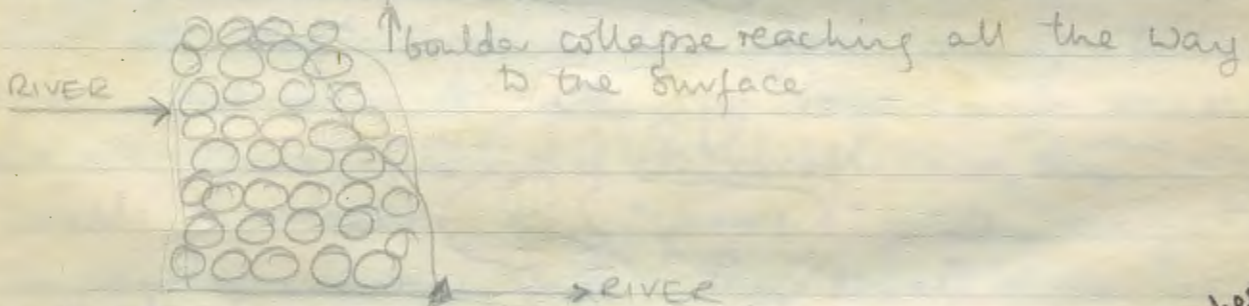 boulder collapse reaching all the way
to the surface
RIVER
RIVER